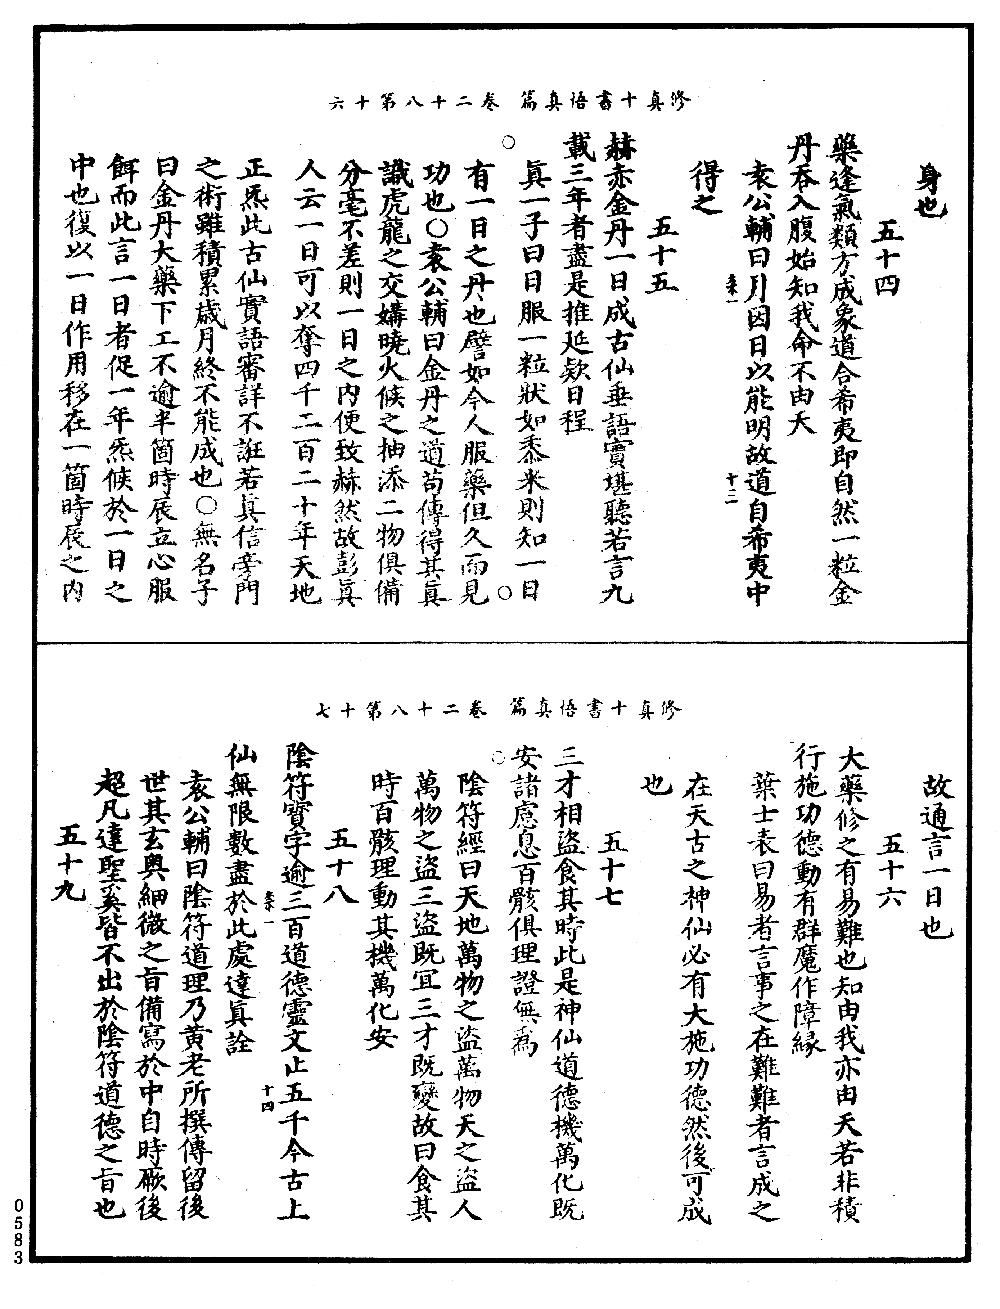 修真十書悟真篇　卷二十八第十六
身也
五十四
藥逢氣類方成象道合希夷即自然一粒金
丹吞入腹始知我命不由天
袁公輔曰月因日以能明故道自希夷中
得之
五十五
赫赤金丹一日成古仙垂語實堪聽若言九
載三年者盡是推延欵日程
眞一子曰日服一粒狀如黍米則知一日
有一日之丹也譬如今人服藥但久而見
功也○袁公輔曰金丹之道苟傳得其眞
識虎龍之交媾曉火候之抽添二物俱備
分毫不差則一日之内便致赫然故彭眞
人云一日可以奪四千二百二十年天地
正炁此古仙實語審詳不誑若眞信旁門
之術雖積累歲月終不能成也○無名子
曰金丹大藥下工不逾半箇時辰立心服
餌而此言一日者促一年炁候於一日之
中也復以一日作用移在一箇時辰之内
十三
修真十書悟真篇　卷二十八第十七
故通言一日也
五十六
大藥修之有易難也知由我亦由天若非積
行施功德動有群魔作障緣
葉士表曰易者言事之在難難者言成之
在天古之神仙必有大施功德然後可成
也
五十七
三才相盜食其時此是神仙道德機萬化既
安諸慮息百骸俱理證無爲
陰符經曰天地萬物之盜萬物天之盜人
萬物之盜三盜既冝三才既變故曰食其
時百骸理動其機萬化安
五十八
陰符寶字逾三百道德靈文止五千今古上
仙無限數盡於此處達眞詮
十四
袁公輔曰陰符道理乃黄老所撰傳留後
世其玄奥細微之旨備寫於中自時厥後
超凡達聖奚皆不出於陰符道德之旨也
五十九
0583